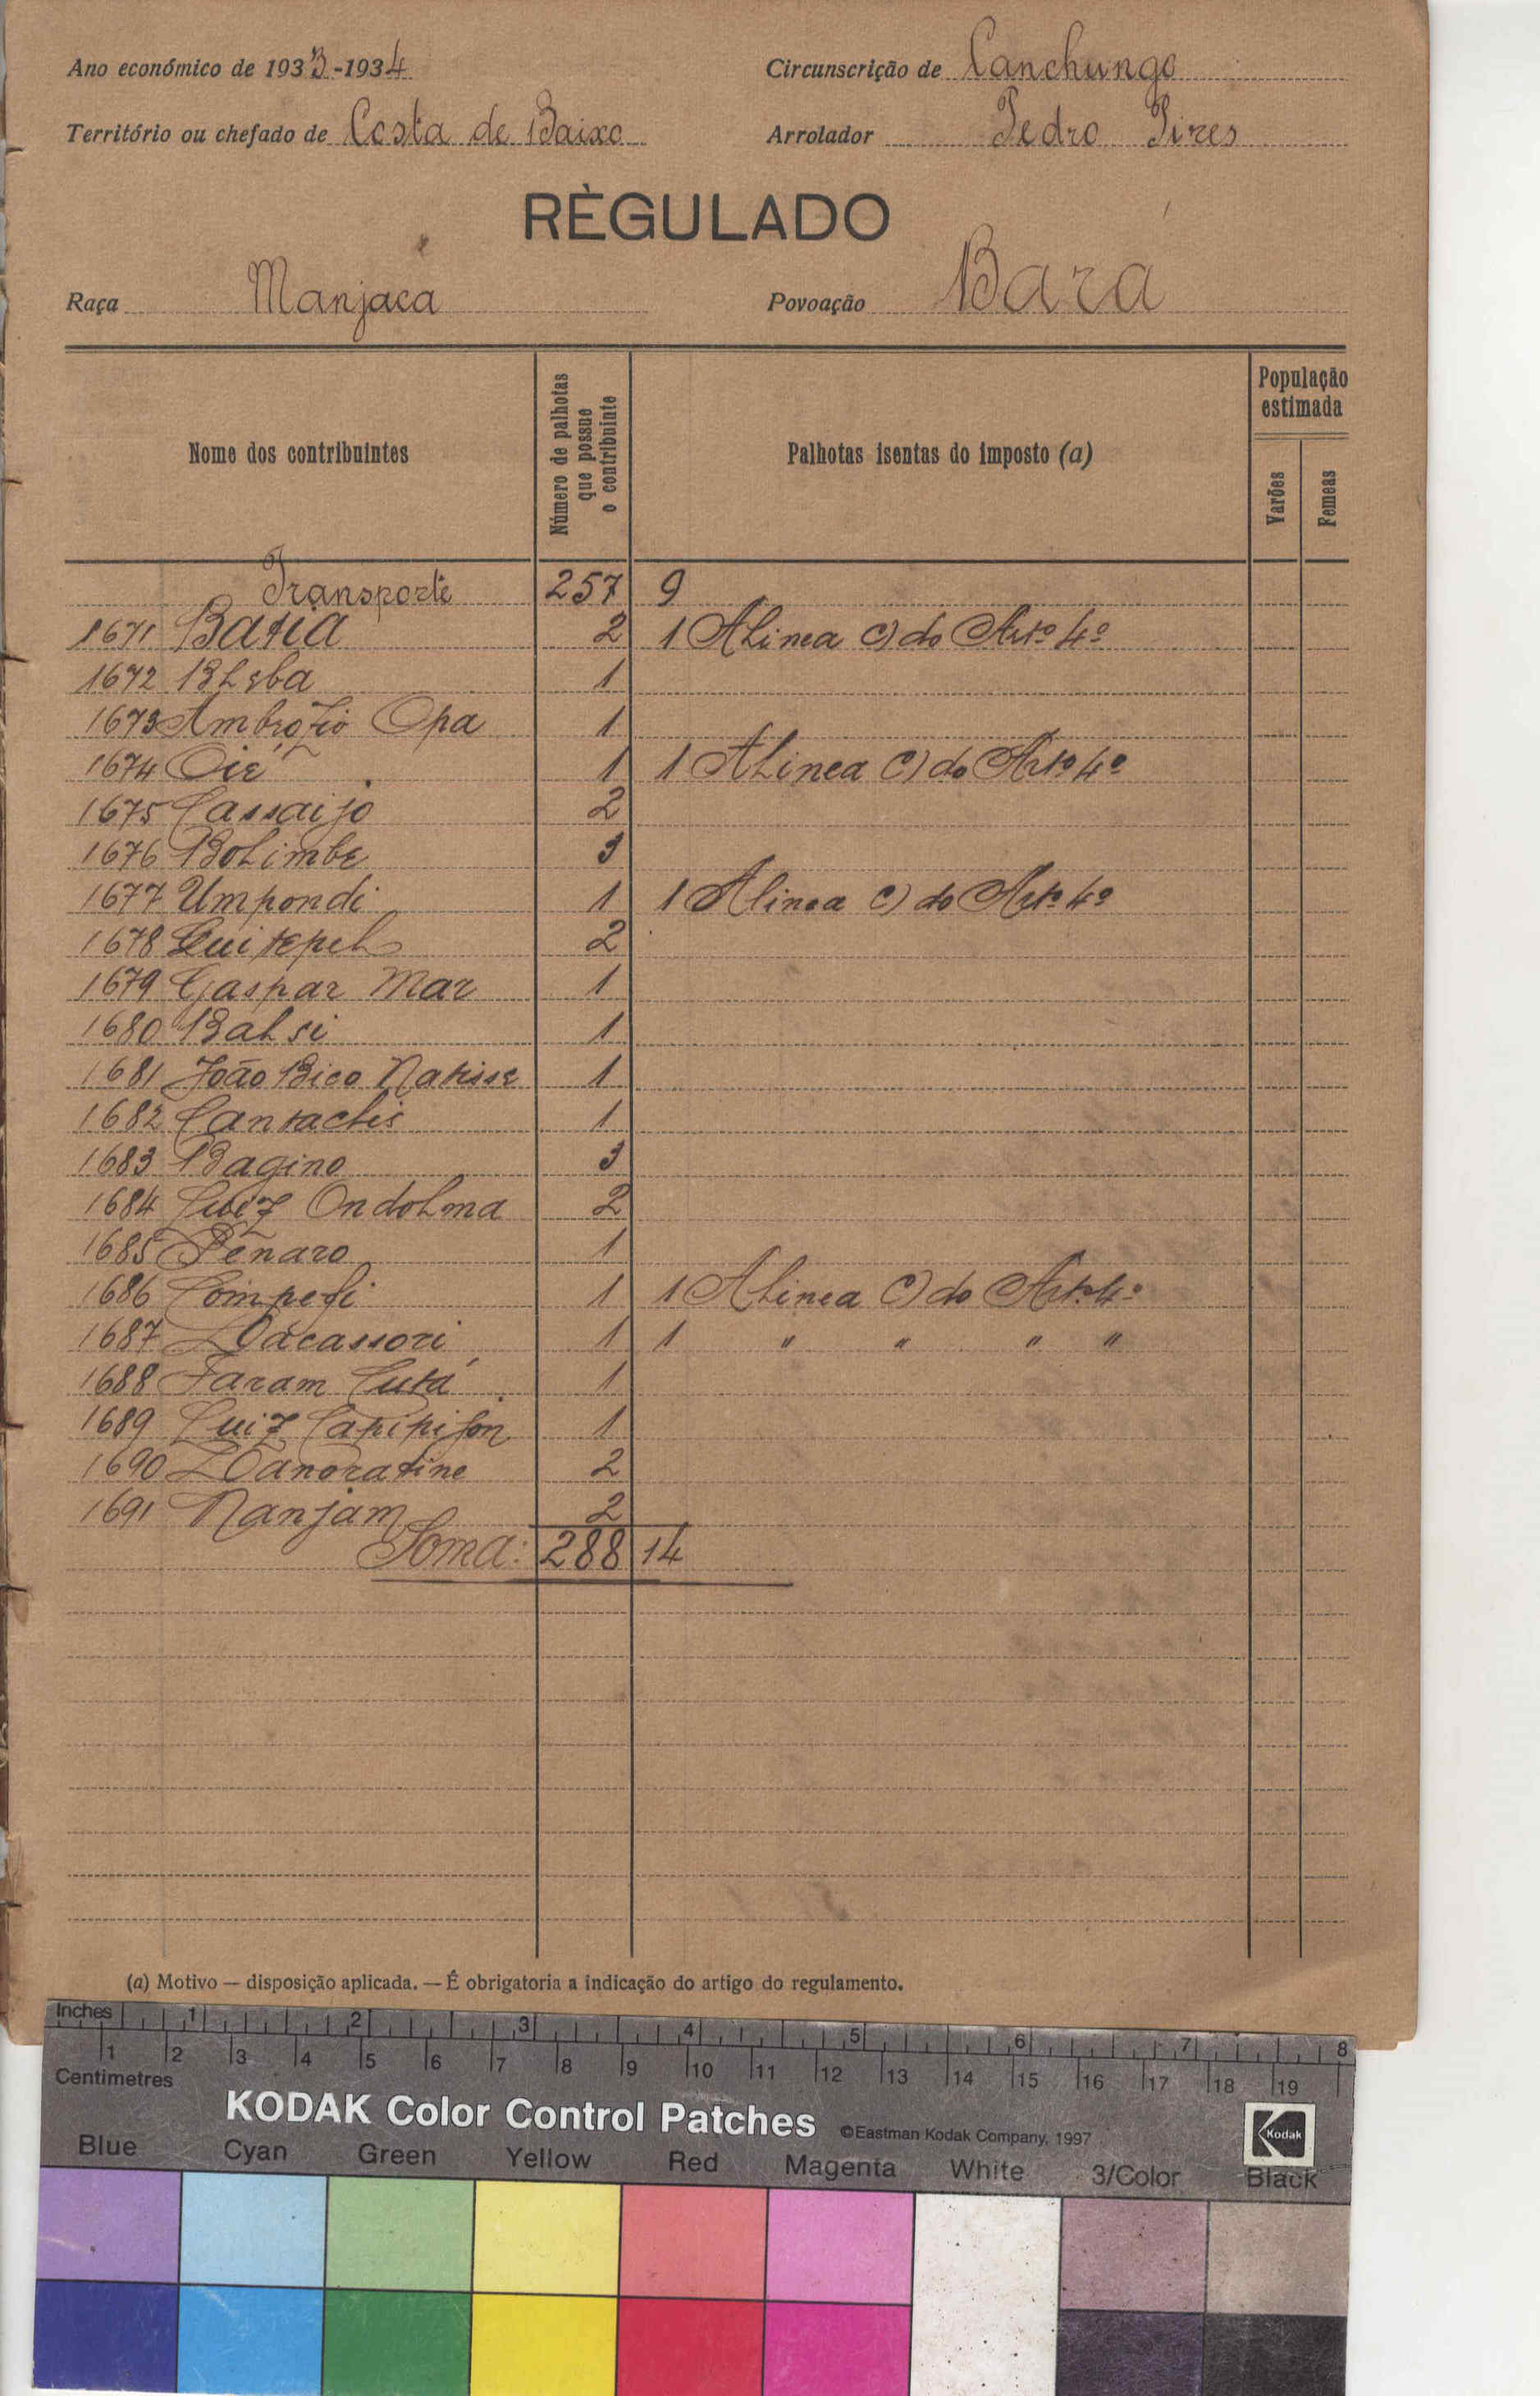 Ano económico de 1933-1934 Circunscrição de Canchungo
Território ou chefado de Costa de Baixo Arrolador Pedro Pires
RÈGULADO
Raça Manjaca Povoação Bara
Nome dos contribuintes
Número de palhotas que possue o contribuinte
Palhotas isentas do imposto (a)
População estimada
Varões
Femeas
Transporte 257 9
1671 2 1 Alinea c) do Artº 4º
1672 1
1673 Ambrozio Opa 1
1674 Oié 1 1 Alinea c) do Artº 4º
1675 Cassaijo 2
1676 Bolimbe 3
1677 Umpondi 1 1 Alinea c) do Artº 4º
1678 Quitepel 2
1679 Gaspar Mar 1
1680 Balsi 1
1681 João Bico Natisse 1
1682 1
1683 Bagino 3
1684 Luiz Ondolma 2
1685 Penaro 1
1686 1 1 Alinea c) do Artº 4º
1687 Dacassori 1 1 " " " "
1688 Faram Cutá 1
1689 Luiz 1
1690 Danoratine 2
1691 Nanjam 2
Soma: 288 14
(a) Motivo — disposição aplicada. — É obrigatoria a indicação do artigo do regulamento.
Inches 1 2 3 4 5 6 7 8
1 2 3 4 5 6 7 8 9 10 11 12 13 14 15 16 17 18 19
Centimetres
KODAK Color Control Patches ©Eastman Kodak Company, 1997 Kodak
Blue Cyan Green Yellow Red Magenta White 3/Color Black